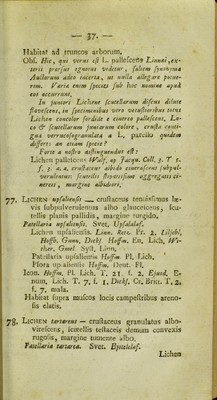 — 37. —
Habitat ad truncos arborum.
Obs. Hic, qui verus est L. pallescens Linnei, exteris prorsus ignotus videtur, saltem synonyma
Auctorum adeo incerta, ut nulla allegare potuerim. Varia enim species sub hoc nomine apud
eos occurrunt.
In juniori Lichene scutellarum discus dilute
flavescens, in speciminibus vero vetustioribus totus
Lichen concolor sordide e cinereo pallescens, Loco & scutellarum juniorum colore, crusta contigua verrucosogranulata a L. parello quidem
differt: an etiam specie?
Forte a nostro distinguendus est:
Lichen pallescens Wulf. ap Jacqu. Coll. p. T 5.
f. 5. a. crustaceus albido cinerascens subpulverulentus scutellis aggregatis cinereis, margine albidiori.
77. LICHEN upsaliensis — crustaceus tenuissimus lævis subpulverulentus albo glaucescens, scutellis planis pallidis, margine turgido.
Patellaria upsaliensis. Svet. Upsalalaf.
Lichen upsaliensis. Linn. Retz. Pr. 2, Liljebl,
Hoffm. Gunn, Dicks Hoffm. En, Lich, Wither, Gmel. Syst. Linn,
Patellaria upsaliensis Hoffm. Pl. Lich,
Psora upsaliensis Hoffm. Deut. Fl,
Icon. Hoffm. Pl. Lich, T. 21. f. 2. Ejusd, Enum, Lich. T. 7. f. 1. Dicks. Cr. Brit. T. 2,
f. 7. mala.
Habitat supra muscos locis campestribus arenosis elatis.
78. LICHEN tartareus — crustaceus granulatus albovirescens, scutellis testaceis demum convexis
rugosis, margine tumente albo.
Patellaria tartarea. Svet.
Lichen